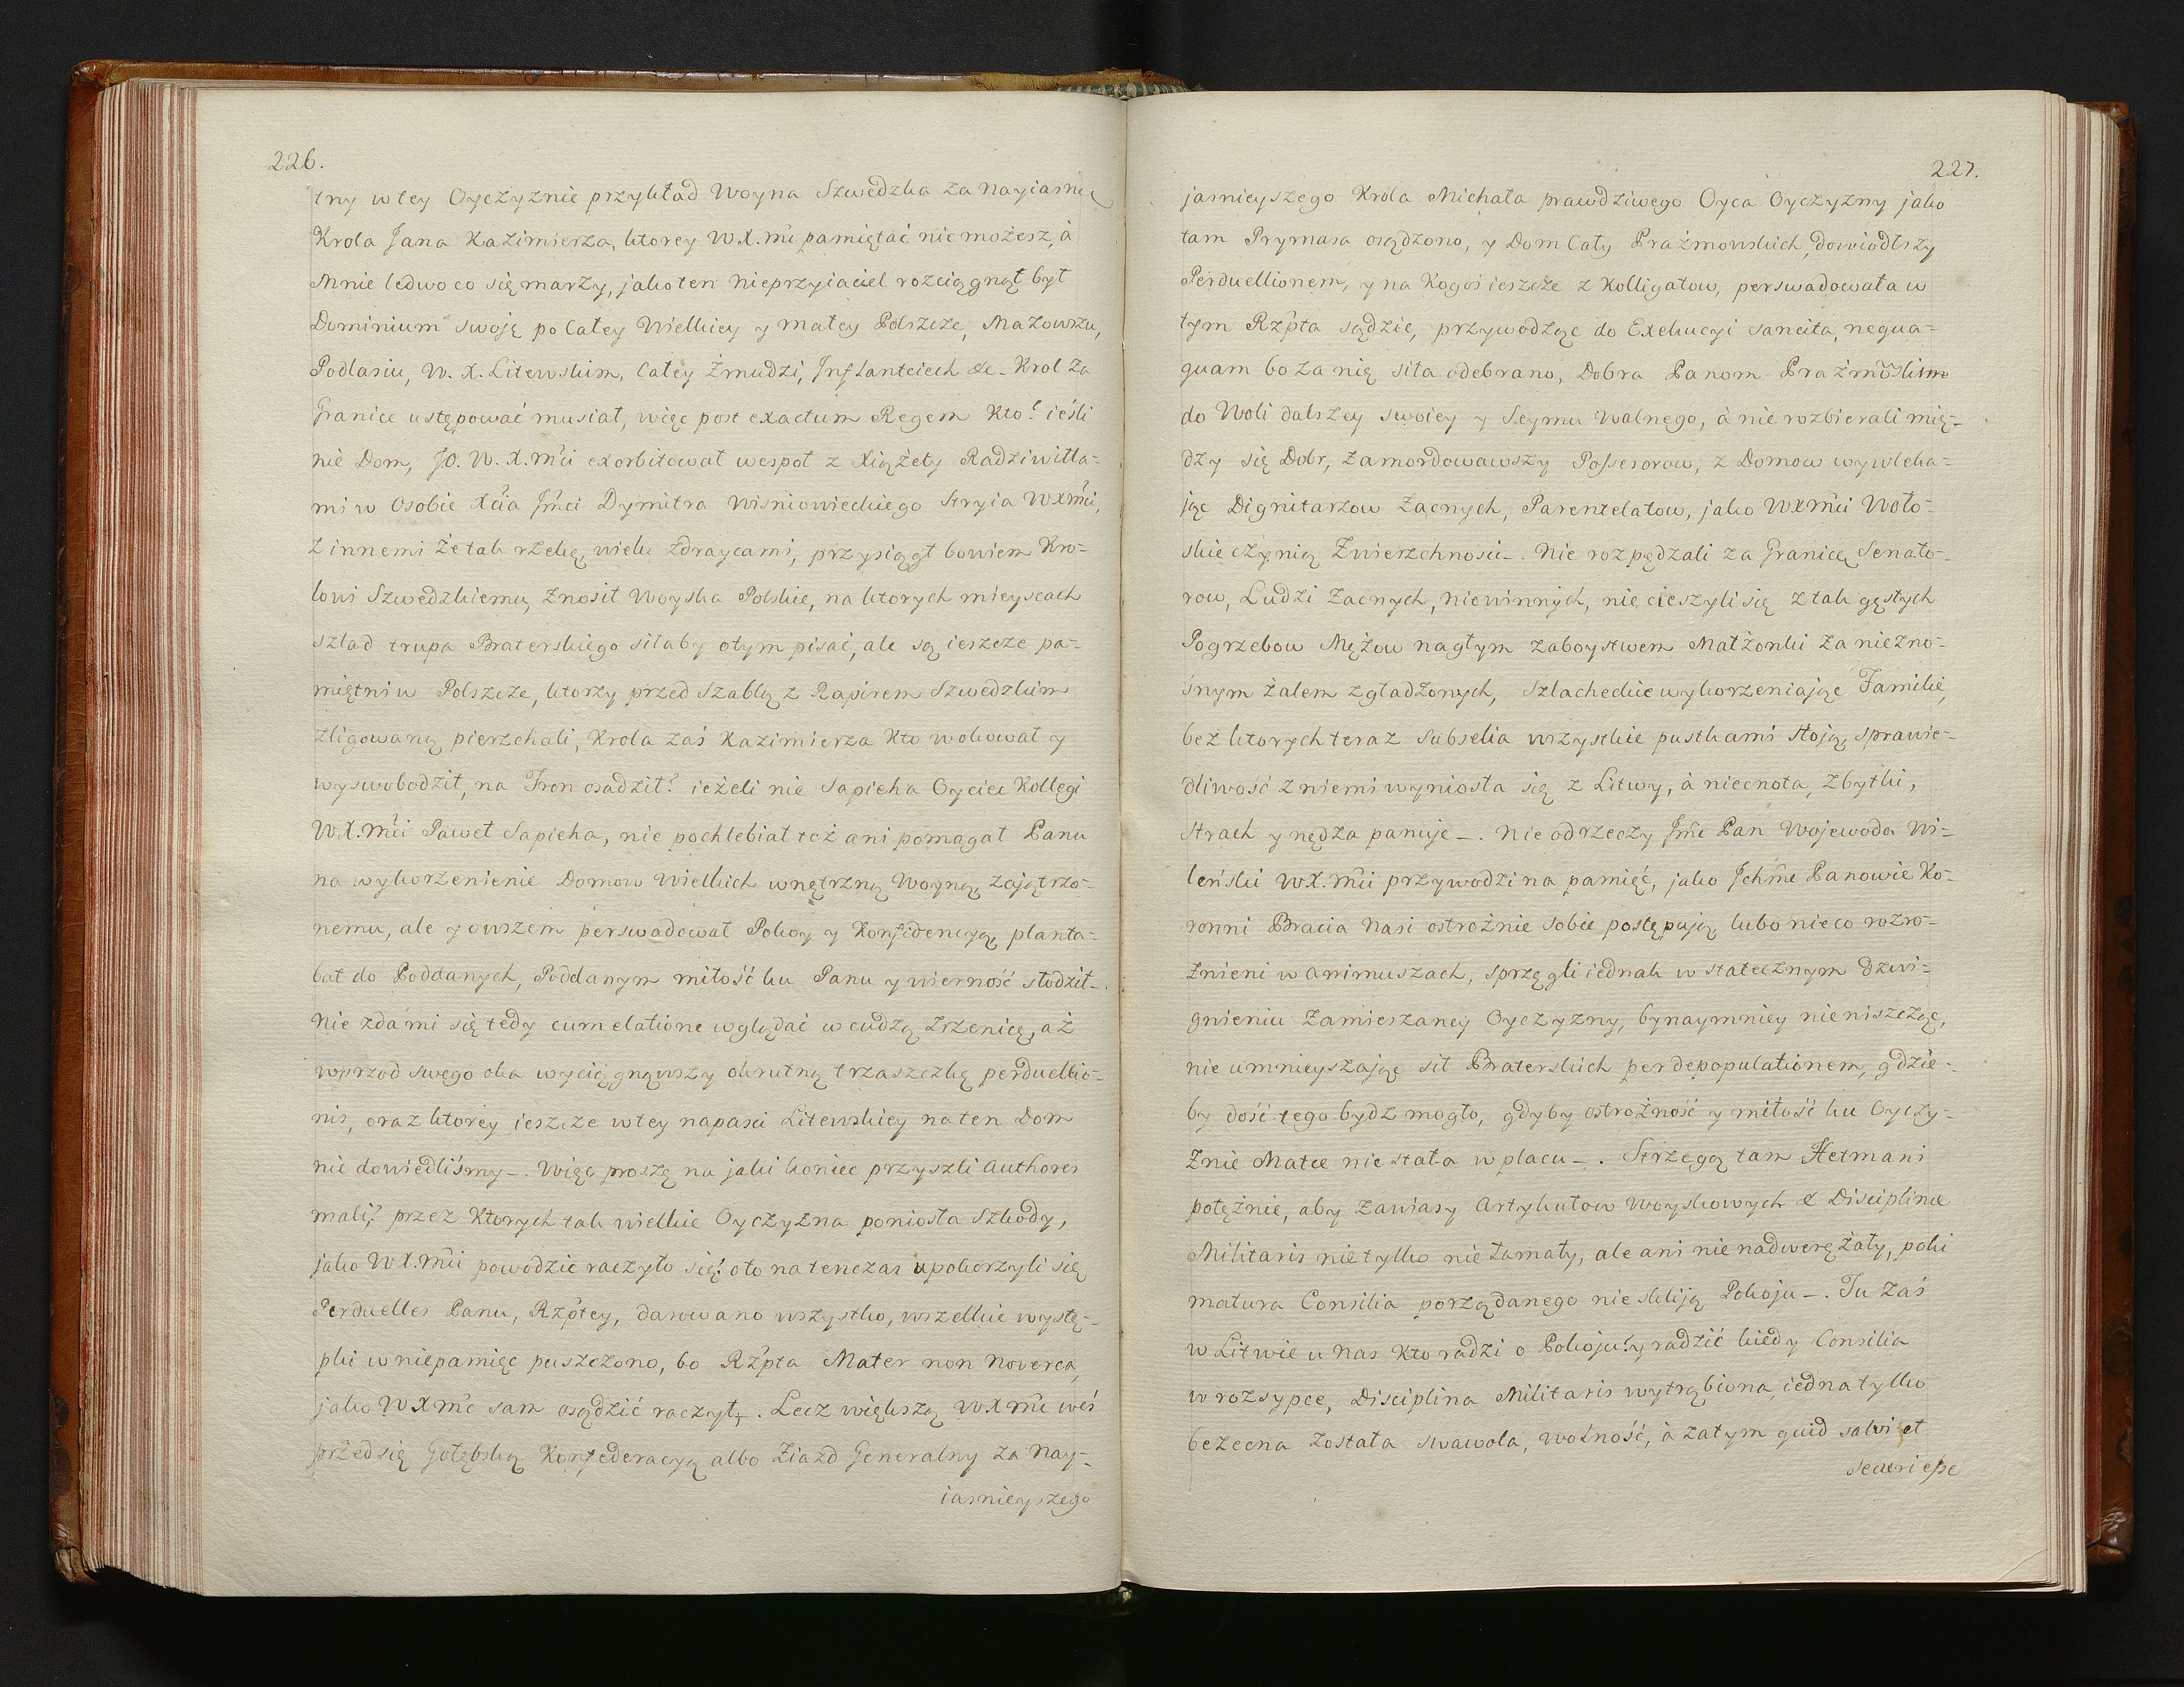 226.
tny w tey Oyczyznie przykład Woyna Szwedzka za nayiasnie
Krola Jana Kazimierza, ktorey W X. mci pamiętać nie możesz, à
Mnie ledwo co się marzy, jako ten nieprzyiaciel rozciągnął był
Dominium swoję po całey Wielkiey y małey Polszcze, Mazowszu,
Podlasiu, W. X. Litewskim, całey Żmudzi, Inflantciech &c. Krol za
Granice ustępować musiał, więc post exactum Regem kto? ieśli
nie Dom, JO. W. X. mci exorbitował wespoł z Xiążęty Radziwiłła-
mi w osobie Xcia Jmci Dymitra Wisniowieckiego Stryia WXmci,
z innemi że tak rzekę, wielu zdraycami, przysiągł bowiem Kro-
lowi Szwedzkiemu, znosił Woyska Polskie, na ktorych mieyscach
szlad trupa Braterskiego siłaby o tym pisać, ale są ieszcze pa-
miętni w Polszcze, ktorzy przed szablą z Rapirem Szwedzkim
zligowaną pierzchali, Krola zaś Kazimierza kto wokował y
wyswobodził, na Tron osadził? ieżeli nie Sapieha Oyciec Kollegi
WX. mci Paweł Sapieha, nie pochlebiał też ani pomagał Panu
na wykorzenienie Domow Wielkich wnętrzną Woyną, zajątrzo-
nemu, ale y owszem perswadował Pokoy y Konfidencyą planta-
bat do Poddanych, Poddanym miłość ku Panu y wierność słodził-.
Nie zda mi się tedy cum elatione wglądać w cudzą zrzenicę, aż
wprzod swego oka wyciągnąwszy okrutną trzaszczkę perduellio-
nis, oraz ktorey ieszcze w tey napasci Litewskiey na ten Dom
nie dowiedliśmy-. Więc proszę na jaki koniec przyszli Authores
mali? przez ktorych tak wielkie Oyczyzna poniosła szkody,
jako WX. mci powodzić raczyło się? oto natenczas upokorzyli się
Perduelles Panu, Rzptey, darowano wszystko, wszelkie wystę-
pki w niepamięć puszczono, bo Rzpta Mater non Noverca,
jako WXmc sam osądzić raczył-. Lecz większą WXmc weś
przed się Gołębską Konfederacyą albo Ziazd Generalny za Nay-
iasnieyszego
227.
jasnieyszego Krola Michała prawdziwego Oyca Oyczyzny jako
tam Prymasa osądzono, y Dom Cały Prażmowskich, dowiodłszy
Perduellionem, y na kogoś ieszcze z Kolligatow, perswadowała w
tym Rzpta sądzić, przywodząc do Exekucyi sancita, nequa-
quam bo za nię siła odebrano, Dobra Panom Prażmoskim
do Woli dalszey swoiey y Seymu Walnego, à nie rozbierali mię-
dzy się Dobr, zamordowawszy Possesorow, z Domow wywleka-
jąc Dignitarzow Zacnych, Parentelatow, jako WXmci Woło-
skie czynią Zwierzchności-. Nie rozpędzali za Granicę Senato-
row, Ludzi Zacnych, niewinnych, nie cieszyli się z tak gęstych
Pogrzebow Mężow nagłym zaboystwem Małżonki za niezno-
śnym żalem zgładzonych, Szlacheckie wykorzeniając Familie,
bez ktorych teraz Subselia wszystkie pustkami stoją, sprawie-
dliwość z niemi wyniosła się z Litwy, à niecnota, zbytki,
strach y nędza panuje-. Nie od rzeczy Jmc Pan Wojewoda Wi-
leński WX. mci przywodzi na pamięć, jako Ichmc Panowie Ko-
ronni Bracia Nasi ostrożnie sobie postępują, lubo nieco rozro-
żnieni w animuszach, sprzęgli iednak w statecznym dzwi-
gnieniu Zamieszaney Oyczyzny, bynaymniey nie niszcząc,
nie umnieyszając sił Braterskich per depopulationem, gdzie-
by dość tego bydz mogło, gdyby ostrożność y miłość ku Oyczy-
znie Matce nie stała w placu-. Strzegą tam Hetmani
potężnie, aby zawiasy Artykułow Woyskowych & Disciplinæ
Militaris nie tylko nie łamały, ale ani nie nadwerężały, poki
matura Consilia porządanego nie skliją Pokoju-. Tu zaś
w Litwie u Nas kto radzi o Pokoju? y radzić kiedy Consilia
w rozsypce, Disciplina Militaris wytrąbiona, iedna tylko
bezecna została swawola, wolność, à zatym quid salvi et
securi esse